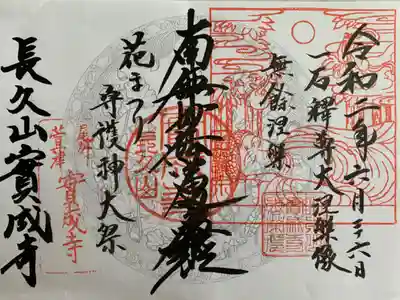 令和二年六月二六日
一石釋尊大涅槃像
無餘涅槃
南無妙法蓮華經
花まつり
守護神大祭
寶成寺
長久山寶成寺